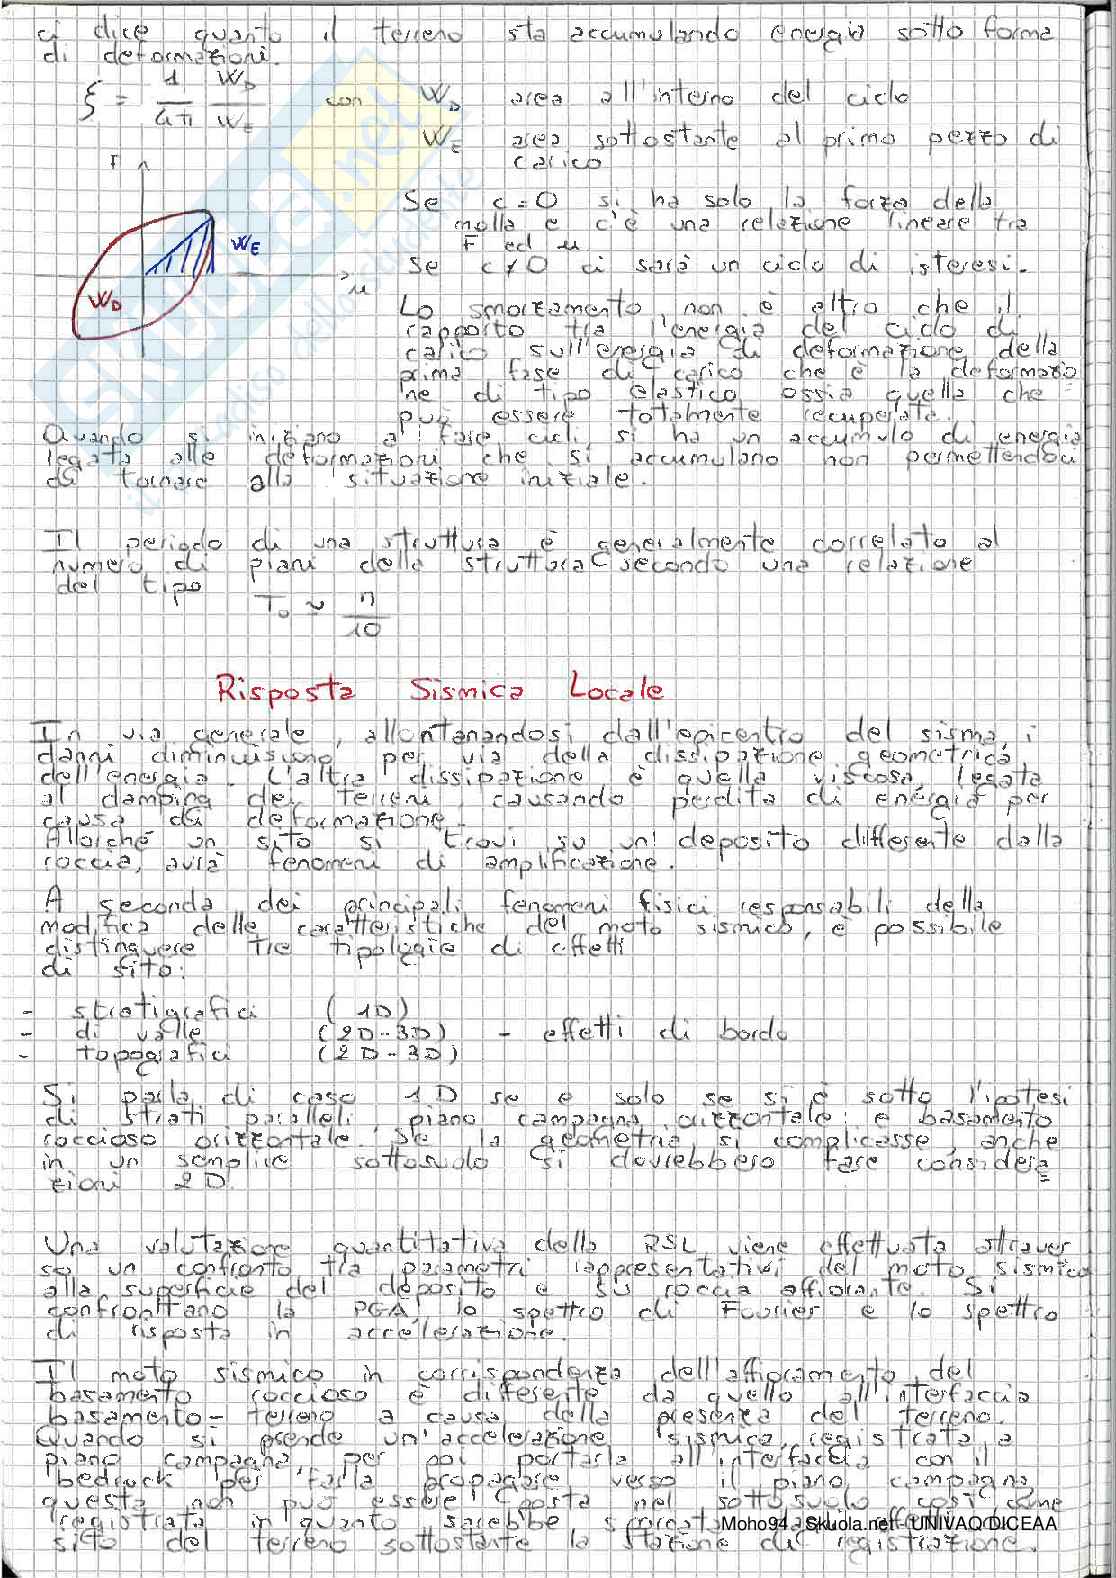 ci dice quanto il terreno sta accumulando energia sotto forma
di deformazioni.
ξ = 1/4π W_D/W_E con W_D area all'interno del ciclo
W_E area sottostante al primo pezzo di
carico
F
W_E
W_D
u
Se c=0 si ha solo la forza della
molla e c'è una relazione lineare tra
F ed u
se c≠0 ci sarà un ciclo di isteresi.
Lo smorzamento non è altro che il
rapporto tra l'energia del ciclo di
carico sull'energia di deformazione della
prima fase di carico che è la deformazio
ne di tipo elastico, ossia quella che
può essere totalmente recuperata.
Quando si iniziano a fare cicli, si ha un accumulo di energia
legata alle deformazioni che si accumulano non permettendoci
di tornare alla situazione iniziale.
Il periodo di una struttura è generalmente correlato al
numero di piani della struttura secondo una relazione
del tipo
T₀ ≈ n/10
Risposta Sismica Locale
In via generale, allontanandosi dall'epicentro del sisma, i
danni diminuiscono per via della dissipazione geometrica
dell'energia. L'altra dissipazione è quella viscosa, legata
al damping dei terreni causando perdita di energia per
causa di deformazione.
Allorché un sito si trovi su un deposito differente dalla
roccia, avrà fenomeni di amplificazione.
A seconda dei principali fenomeni fisici responsabili della
modifica delle caratteristiche del moto sismico, è possibile
distinguere tre tipologie di effetti
di sito:
- stratigrafici (1D)
- di valle (2D-3D) - effetti di bordo
- topografici (2D-3D)
Si parla di caso 1D se e solo se si è sotto l'ipotesi
di strati paralleli, piano campagna orizzontale e basamento
roccioso orizzontale. Se la geometria si complicasse, anche
in un semplice sottosuolo si dovrebbero fare considera
zioni 2D.
Una valutazione quantitativa della RSL viene effettuata attraver
so un confronto tra parametri rappresentativi del moto sismico
alla superficie del deposito e su roccia affiorante. Si
confrontano la PGA, lo spettro di Fourier e lo spettro
di risposta in accelerazione.
Il moto sismico in corrispondenza dell'affioramento del
basamento roccioso è differente da quello all'interfaccia
basamento-terreno a causa della presenza del terreno.
Quando si prende un'accelerazione sismica registrata a
piano campagna, per poi portarla all'interfaccia con il
bedrock per farla propagare verso il piano campagna
questa non può essere posta nel sottosuolo così come
registrata in quanto sarebbe
sito del terreno sottostante la stazione di registrazione.
Moho94 - Skuola.net - UNIVAQ DICEAA
skuola.net